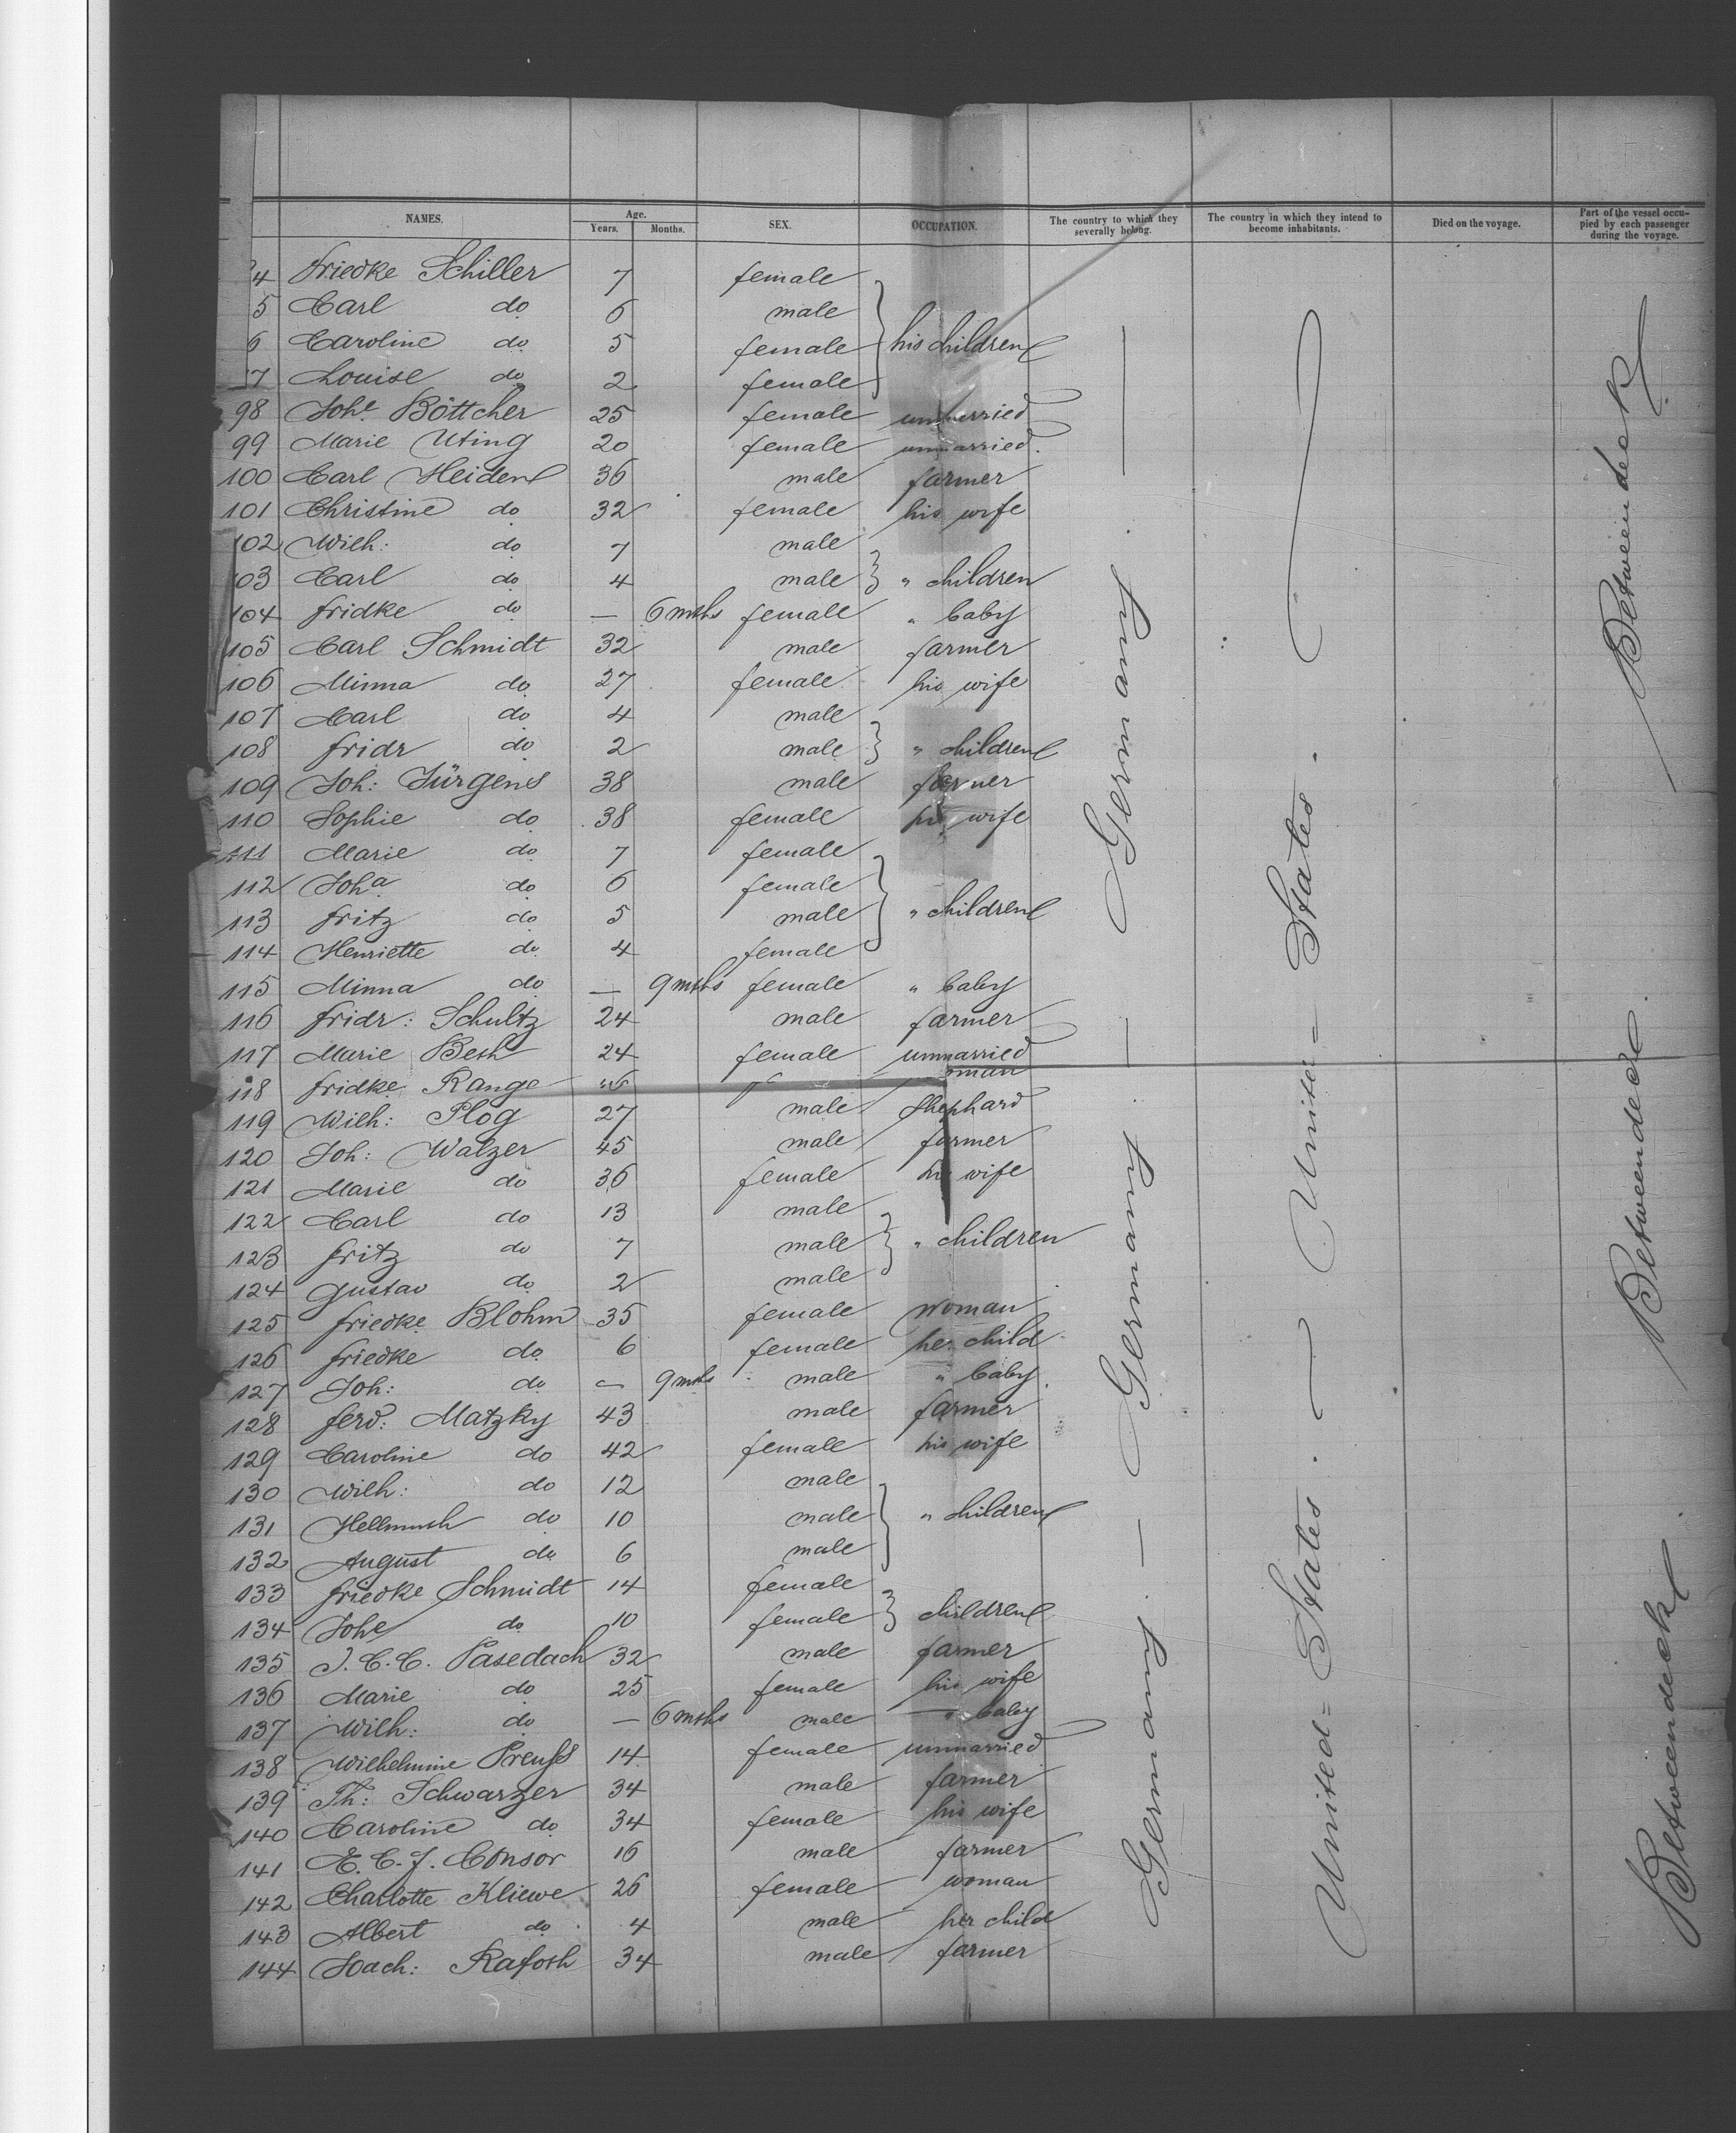 NAMES. Age. Years. Months. SEX. OCCUPATION. The country to which they severally belong. The country in which they intend to become inhabitants. Died on the voyage. Part of the vessel occupied by each passenger during the voyage.
4 Friedke Schiller 7 female
5 Carl do 6 male
6 Caroline do 5 female his children
7 Louise do 2 female
98 Johe Böttcher 25 female unmarried
99 Marie Uting 20 female unmarried.
100 Carl Heiden 36 male farmer
101 Christine do 32 female his wife
102 Wilh: do 7 male
103 Carl do 4 male " children
104 Fridke do — 6 mths female " baby
105 Carl Schmidt 32 male farmer
106 Minna do 27 female his wife
107 Carl do 4 male
108 Fridr do 2 male " children
109 Joh: Jürgens 38 male farmer
110 Sophie do 38 female his wife
111 Marie do 7 female
112 Joha do 6 female
113 Fritz do 5 male " children
114 Henriette do 4 female
115 Minna do — 9 mths female " baby
116 Fridr: Schultz 24 male farmer
117 Marie Besh 24 female unmarried
118 Fridke Range
119 Wilh: Plog 27 male Shephard
120 Joh: Walzer 45 male farmer
121 Marie do 36 female his wife
122 Carl do 13 male
123 Fritz do 7 male " children
124 Gustav do 2 male
125 Friedke Blohm 35 female woman
126 Friedke do 6 female her child
127 Joh: do — 9 mths male " baby
128 Ferd: Matzky 43 male farmer
129 Caroline do 42 female his wife
130 Wilh: do 12 male
131 Hellmuth do 10 male " children
132 August do 6 male
133 Friedke Schmidt 14 female
134 Johe do 10 female children
135 J. C. C. Pasedach 32 male farmer
136 Marie do 25 female his wife
137 Wilh: do — 6 mths male " baby
138 Wilhelmine Preuß 14 female unmarried
139 Th: Schwarzer 34 male farmer
140 Caroline do 34 female his wife
141 E. C. J. Consor 16 male farmer
142 Charlotte Kliewe 26 female woman
143 Albert do 4 male her child
144 Joach: Rafosh 34 male farmer
— Germany. — Germany. — Germany.
United=States. — United=States.
Betweendeck Betweendeck Betweendeck